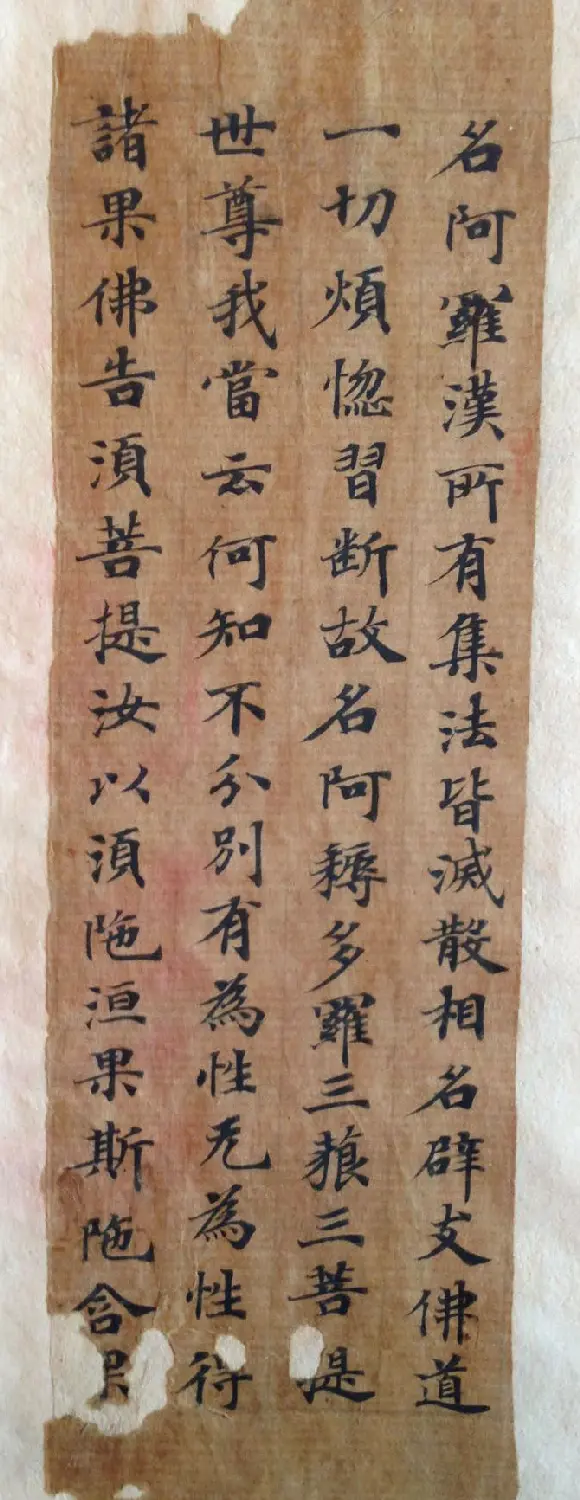 名阿羅漢所有集法皆滅散相名辟支佛道
一切煩惚習断故名阿耨多羅三藐三菩提
世尊我當云何知不分別有為性无為性得
諸果佛告湏菩提汝以湏陁洹果斯陁含果